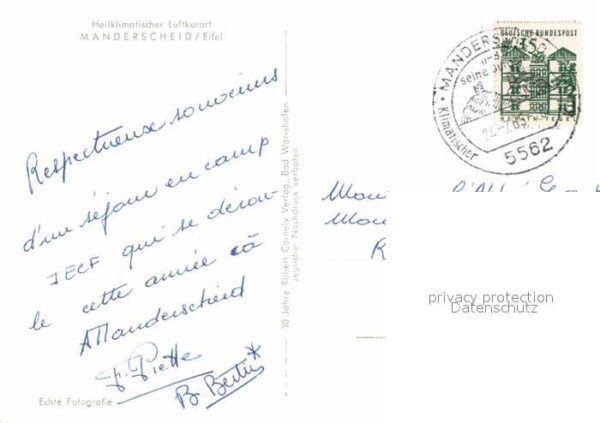 Heilklimatischer Luftkurort
MANDERSCHEID/Eifel
Respectueux souvenirs
d'un séjour en camp
JECF qui se dérou-
le cette année à
Manderscheid
F. Piette
B. Bertin
Echte Fotografie
30 Jahre Robert Cornely Verlag, Bad Wörishofen
Jeglicher Nachdruck verboten
DEUTSCHE BUNDESPOST
150
MANDERS
und
seine
Klimatischer
5562
privacy protection
Datenschutz